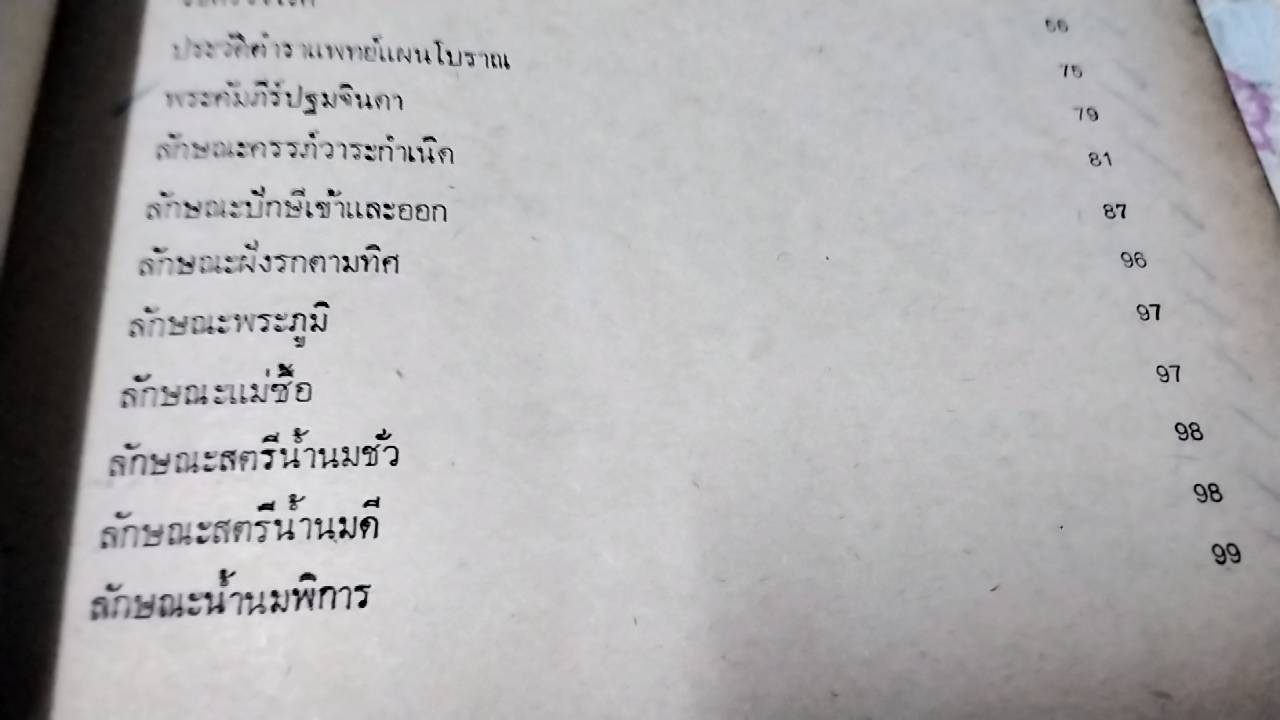 66
ประวัติตำราแพทย์แผนโบราณ 75
พระคัมภีร์ปฐมจินดา 79
ลักษณะครรภ์วาระกำเนิด 81
ลักษณะปักษีเข้าและออก 87
ลักษณะฝังรกตามทิศ 96
ลักษณะพระภูมิ 97
ลักษณะแม่ซื้อ 97
ลักษณะสตรีน้ำนมชั่ว 98
ลักษณะสตรีน้ำนมดี 98
ลักษณะน้ำนมพิการ 99